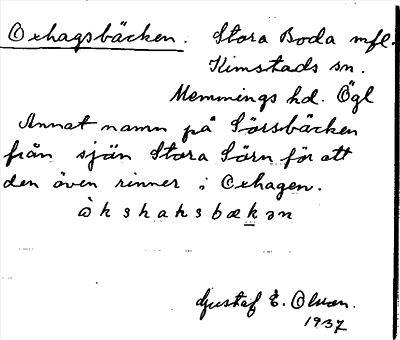 Oxhagsbäcken. Stora Boda mfl.
Kimstads sn.
Memmings hd. Ögl
Annat namn på Sörsbäcken
från sjön Stora Sörn för att
den även rinner i Oxhagen.
Gustaf E. Olson.
1937